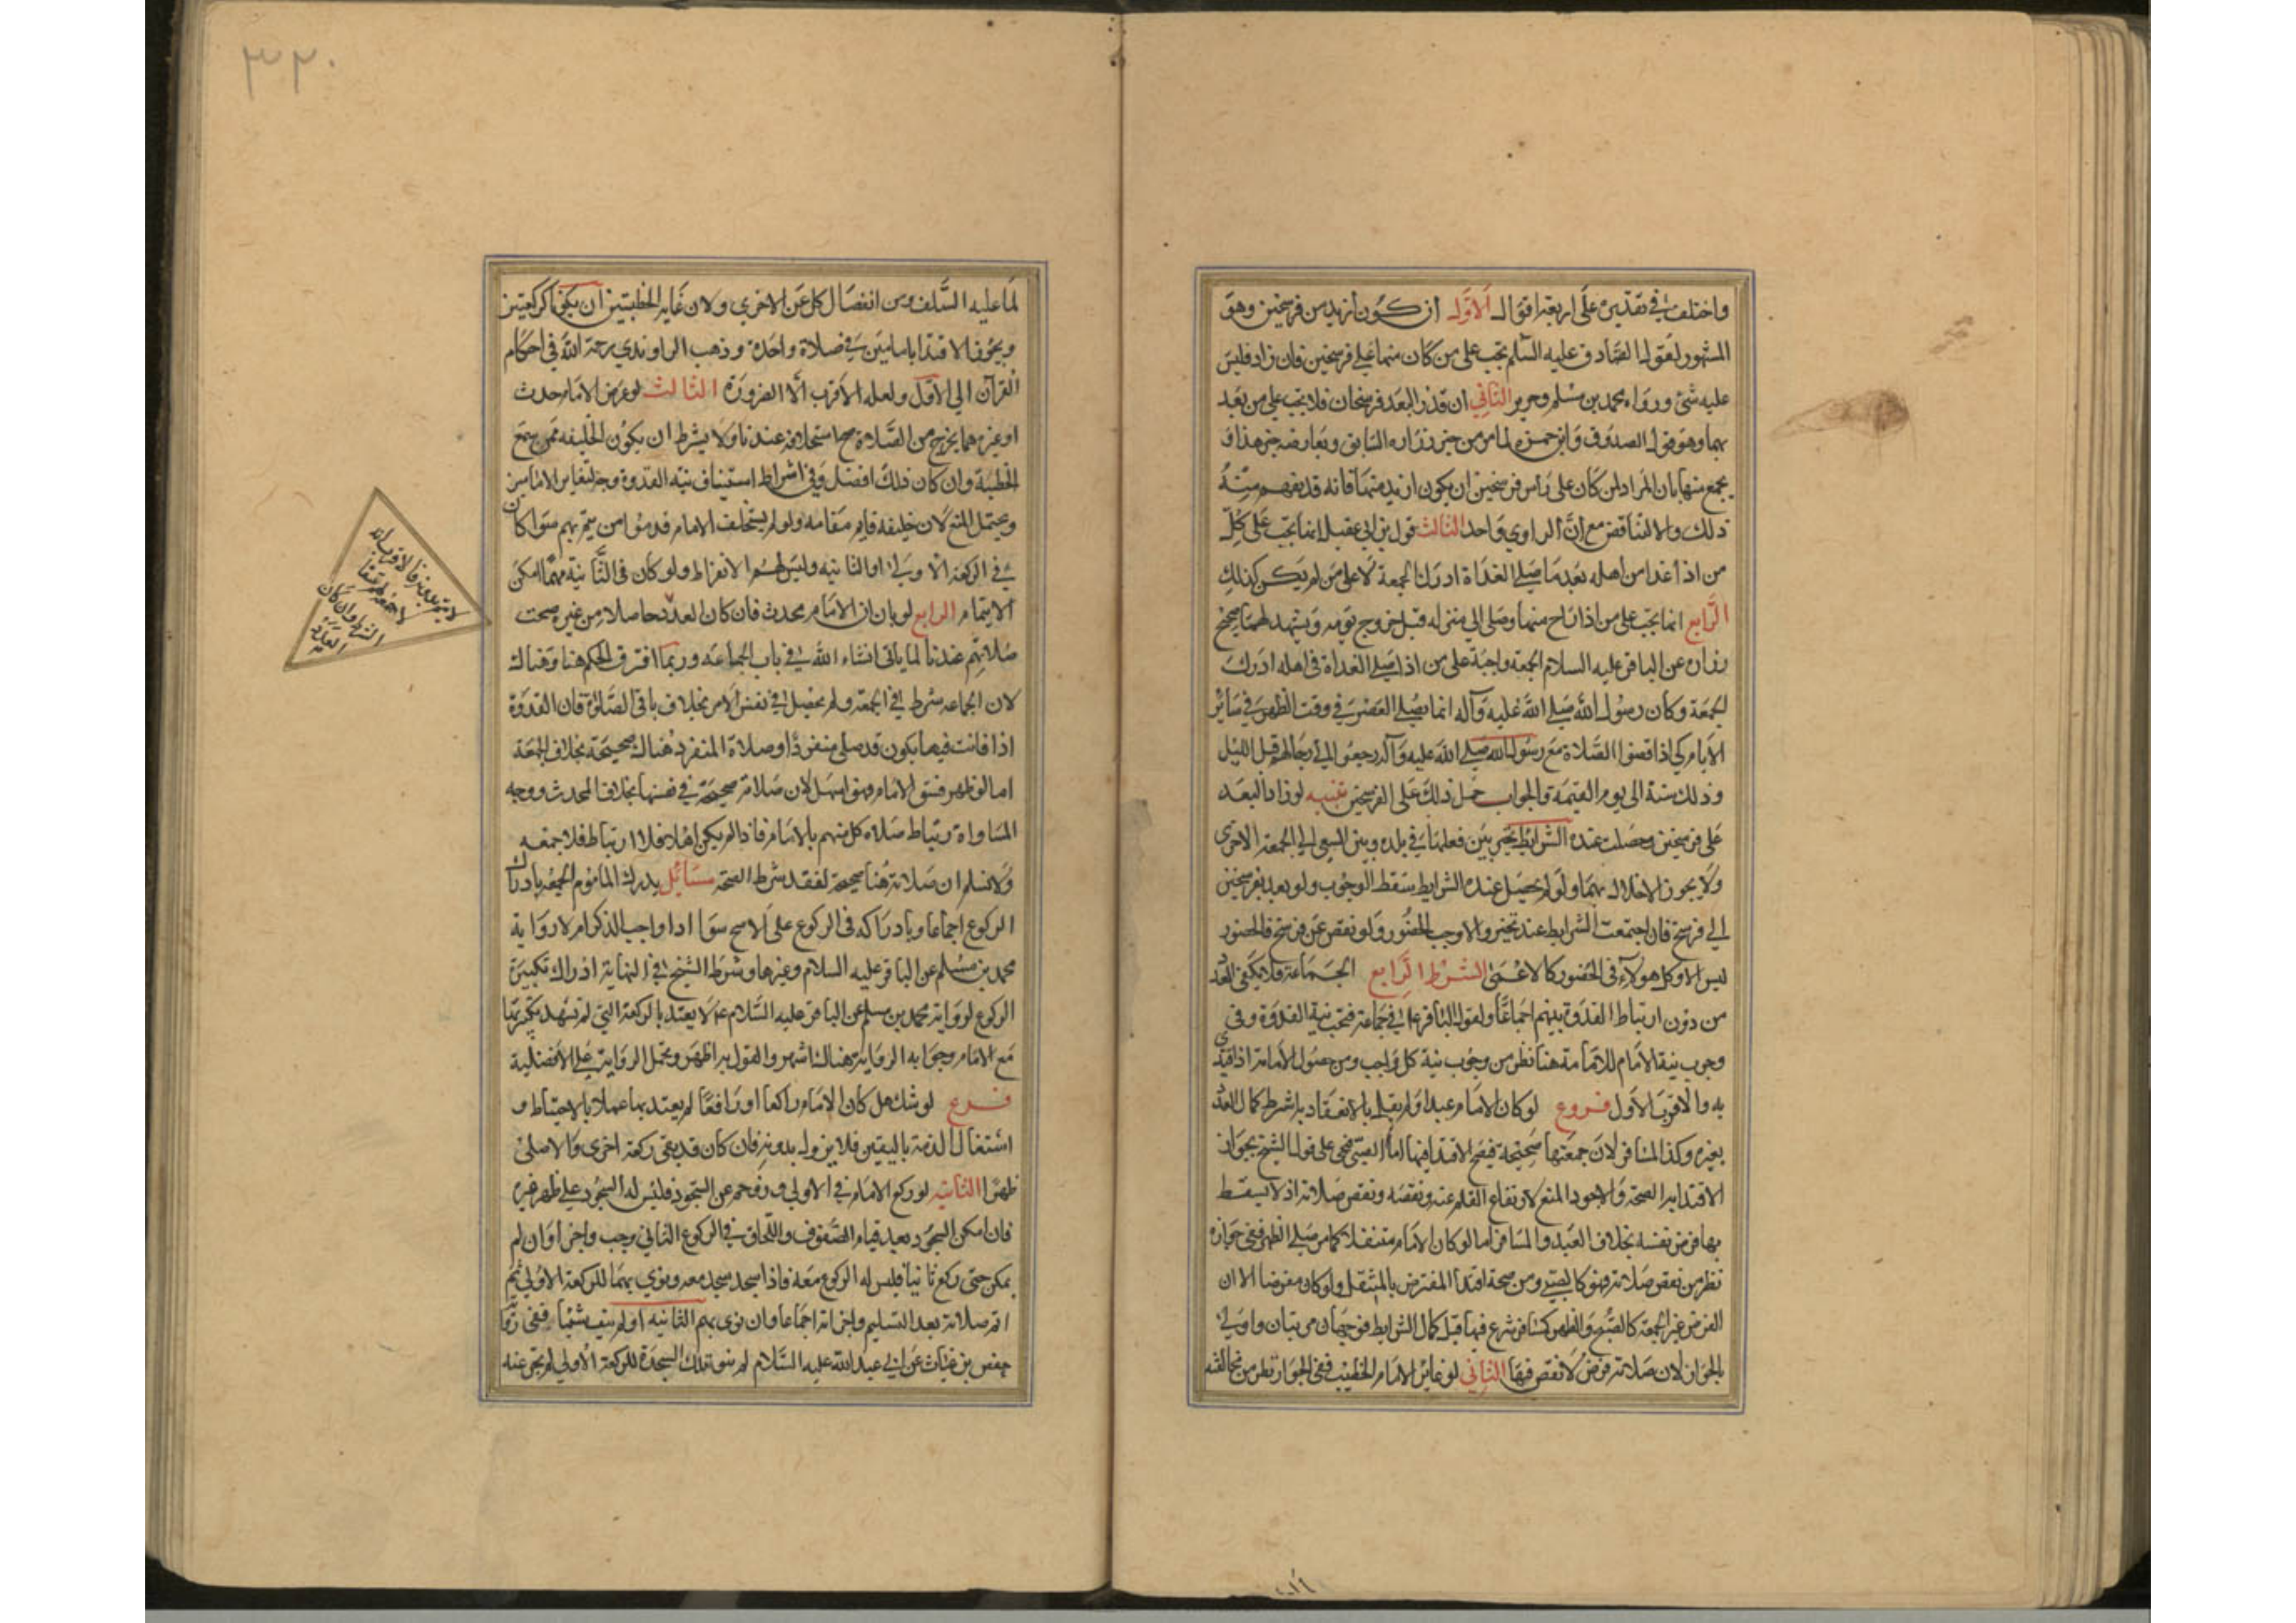 واختلف في تقديره على اربعة اقوال الاول ان يكون ازيد من فرسخين وهو
المشهور لقول الصادق عليه السلم تجب على من كان منها على فرسخين فان زاد فليس
عليه شئ ورواه محمد بن مسلم وحريز الثاني ان قدر البعد فرسخان فلا تجب على من بعد
بهما وهو قول الصدوق وابن حمزه لما مر من خبر زراره السابق ويعارضه خبر هذا و
يجمع بينها بان المراد بمن كان على رأس فرسخين ان يكون ازيد منهما فانه قد يفهم منه
ذلك والا لتناقض مع ان الراوي واحد الثالث قول بن ابي عقيل انما تجب على كل
من اذا غدا من اهله بعد ما صلى الغداة ادرك الجمعة لا على من لم يكن كذلك
الرابع انما تجب على من اذا راح منها وصل الى منزله قبل خروج يومه ويشهد لهما صحيح
زراره عن الباقر عليه السلام الجمعة واجبة على من اذا صلى الغداة في اهله ادرك
الجمعة وكان رسول الله صلى الله عليه وآله انما يصلي العصر في وقت الظهر في سائر
الأيام كي اذا قضوا الصلاة مع رسول الله صلى الله عليه وآله رجعوا الى رحالهم قبل الليل
وذلك سنة الى يوم القيمة والجواب حمل ذلك على الفرسخين تنبيه لو زاد البعد
على فرسخين وحصلت عنده الشرايط تخير بين فعلها في بلده وبين السعي الى الجمعة الاخرى
ولا يجوز الاخلال بهما ولو لم يحصل عنده الشرايط سقط الوجوب ولو بعد بفرسخين
الى فرسخ فان اجتمعت الشرايط عنده تخير والا وجب الحضور ولو نقص عن فرسخ فالحضور
ليس الا وكل هولاء في الحضور كالاعمى الشرط الرابع الجماعة فلا يكفي العدد
من دون ارتباط القدوة بينهم اجماعا ولقول الباقر ع في جماعة فتجب نية القدوة وفي
وجوب نية الامام للامامة هنا نظر من وجوب نية كل واجب ومن حصول الامامة اذا اقتدي
به والاقرب الاول فروع لو كان الامام عبدا ولم يقل بالانعقاد به اشترط كمال العدد
بغيره وكذا المسافر لان جمعتهما صحيحة فيصح الاقتداء فيها اما الصبي فعلى قول الشيخ بجواز
الاقتداء به الصحة والاجود المنع لارتفاع القلم عنه ونقصه ونقص صلاته اذ لا يسقط
بها فرض نفسه بخلاف العبد والمسافر اما لو كان الامام متنفلا كما مر صلى الظهر ففي جوازه
نظر من نقص صلاته فهو كالصبي ومن صحة اقتداء المفترض بالمتنفل ولو كان مفترضا الا ان
الفرض غير الجمعة كالصبح والظهر كمسافر شرع فيها قبل كمال الشرايط فوجهان مرتبان واولى
بالجواز لان صلاته فرض لا نقص فيها الثاني لو غاير الامام الخطيب ففي الجواز نظر من مخالفته
٣٢٠
لما عليه السلف ومن انفصال كل عن الاخري ولان غاية الخطبتين ان يكونا كركعتين
ويجوز الاقتداء بامامين في صلاة واحدة وذهب الراوندي رحمة الله في احكام
القرآن الى الاول ولعله الاقرب الا الضرورة الثالث لو عرض للامام حدث
او غيره مما يخرج من الصلاة صح استخلافه عندنا ولا يشترط ان يكون الخليفه ممن سمع
الخطبة وان كان ذلك افضل وفي اشتراط استيناف نية القدوة وجه لتغاير الامامين
ويحتمل المنع لان خليفه قايم مقامه ولو لم يستخلف الامام قدموا من يتم بهم سوا كان
في الركعة الاولى او الثانيه وليس لهم الانفراد ولو كان في الثانية مهما امكن
الايتمام الرابع لو بان ان الامام محدث فان كان العدد حاصلا من غيره صحت
صلاتهم عندنا لما ياتي انشاء الله في باب الجماعة وربما افترق الحكم هنا وهناك
لان الجماعه شرط في الجمعة ولم تحصل في نفس الامر بخلاف باقي الصلاة فان القدوة
اذا فاتت فيها يكون قد صلى منفردا وصلاة المنفرد هناك صحيحة بخلاف الجمعة
اما لو ظهر فسق الامام فهو اسهل لان صلاته صحيحة في نفسها بخلاف المحدث ووجه
المساواة ارتباط صلاة كل منهم بالامام فاذا لم يكن اهلا فلا ارتباط فلا جمعه
ولا نسلم ان صلاته هنا صحيحة لفقد شرط الصحة مسائل يدرك الماموم الجمعة بادراك
الركوع اجماعا وبادراكه في الركوع على الاصح سوا ادا واجب الذكر ام لا رواية
محمد بن مسلم عن الباقر عليه السلام وغيرها وشرط الشيخ في النهاية ادراك تكبيرة
الركوع لرواية محمد بن مسلم عن الباقر عليه السلام لا يعتد بالركعة التي لم تشهد تكبيرتها
مع الامام وجوابه الرواية هناك اشهر والقول بها اظهر وتحمل الرواية على الافضلية
فرع لو شك هل كان الامام راكعا او رافعا لم يعتد بها عملا بالاحتياط و
اشتغال الذمة باليقين فلا يزول بدونه فان كان قد بقي ركعة اخرى والا صلى
ظهرا الثانية لو ركع الامام في الاولى وزوحم عن السجود فليس له السجود على ظهر غيره
فان امكن السجود بعد قيام الصفوف واللحاق في الركوع الثاني وجب واجزا وان لم
يمكن حتى ركع ثانيا فليس له الركوع معه فاذا سجد سجد معه ونوي بهما للركعة الاولى ثم
اتم صلاته بعد التسليم واجزاته اجماعا وان نوى بهم الثانيه او لم ينو شيئا ففي رواية
حفص بن غياث عن ابي عبد الله عليه السلام لم ينو تلك السجدة للركعة الاولى لم تجز عنه